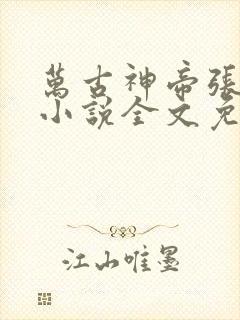 萬古神帝張
小說全文免
江山唯墨